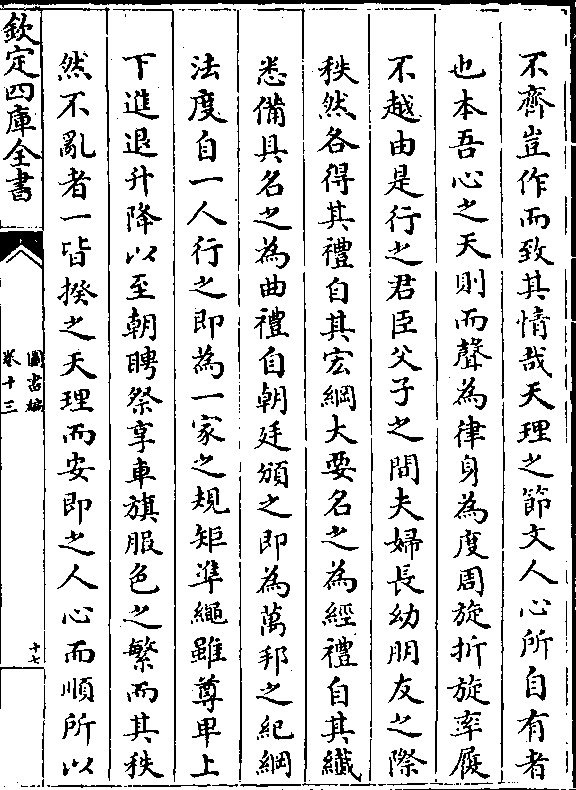 不齊豈作而致其情哉天理之節文人心所自有者
也本吾心之天則而聲為律身為度周旋折旋率履
不越由是行之君臣父子之間夫婦長幼朋友之際
秩然各得其禮自其宏綱大要名之為經禮自其纖
悉備具名之為曲禮自朝廷頒之即為萬邦之紀綱
法度自一人行之即為一家之規矩準繩雖尊卑上
下進退升降以至朝聘祭享車旗服色之繁而其秩
然不亂者一皆揆之天理而安即之人心而順所以
欽定四庫全書
圖書編
卷十三
十七